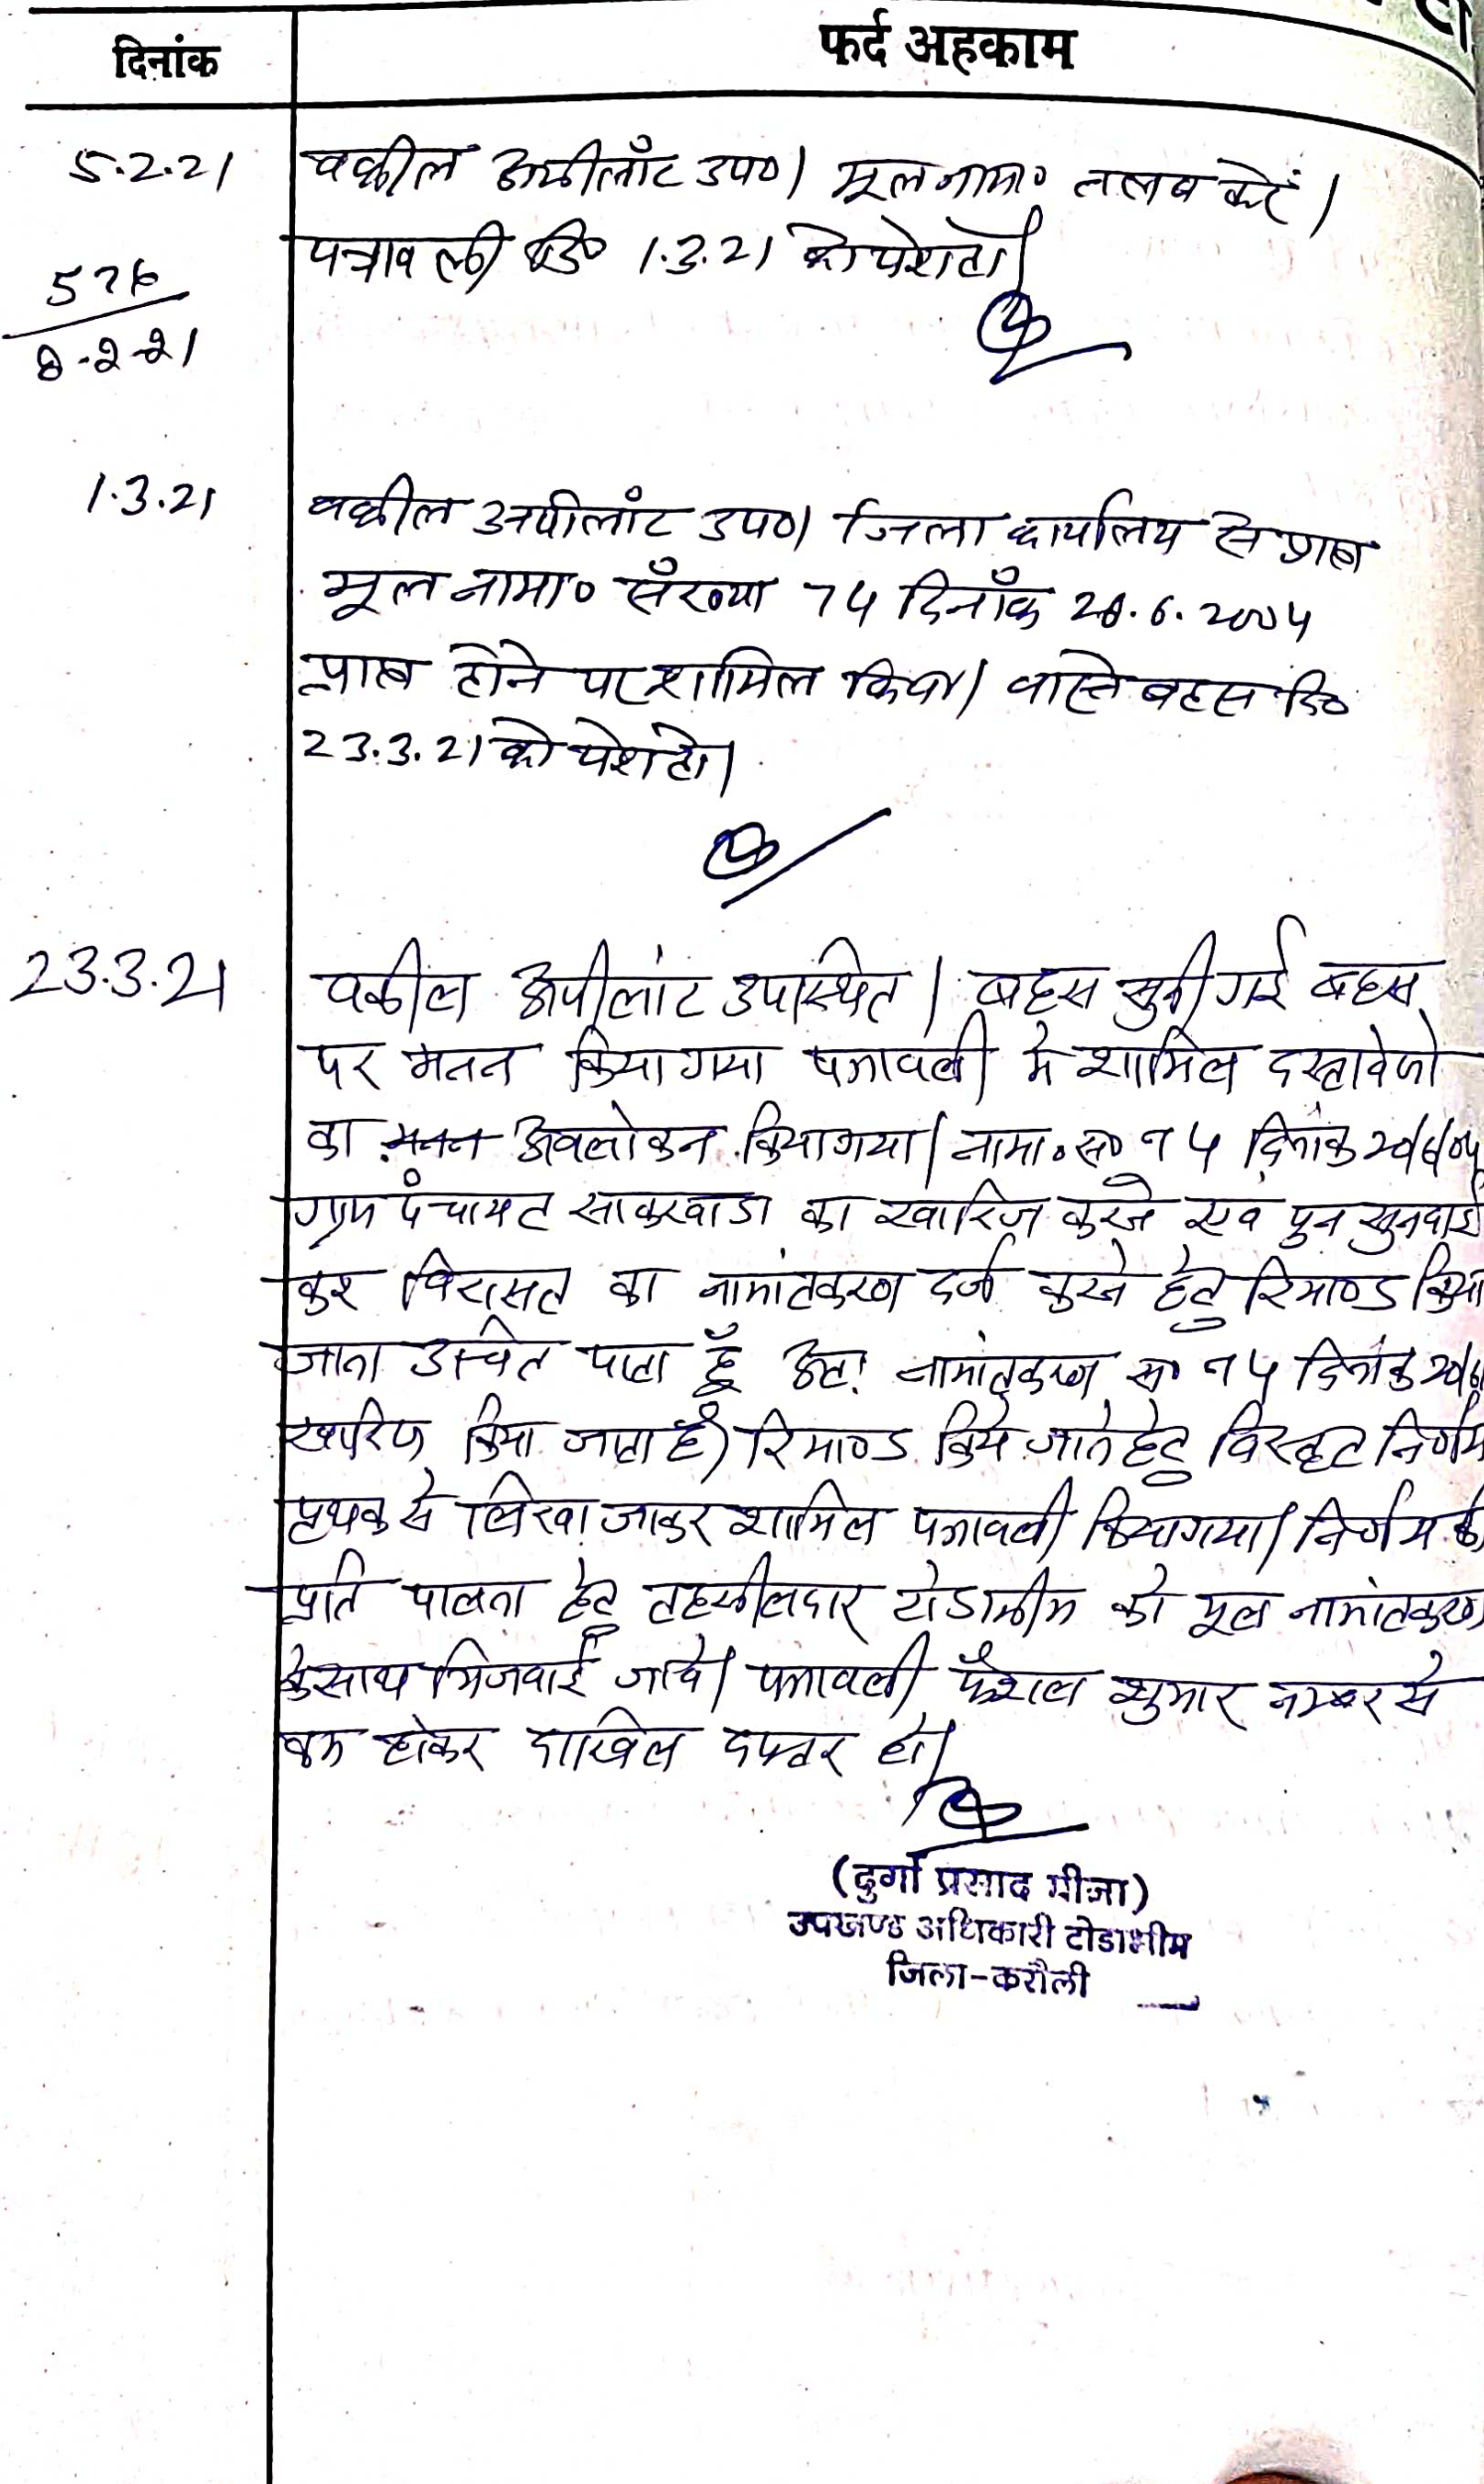 दिनांक
फर्द अहकाम
5.2.21
वकील अपीलाँट उप०। मूल नामा० तलब करें।
पत्रावली दि० 1.3.21 को पेश हो।
576
8-2-21
1.3.21
वकील अपीलांट उप०। जिला कार्यालय से प्राप्त
मूल नामा० सँख्या 74 दिनाँक 28.6.2004
प्राप्त होने पर शामिल किया। वास्ते बहस दि०
23.3.21 को पेश हो।
23.3.21
वकील अपीलांट उपस्थित। बहस सुनी गई बहस
पर मनन किया गया पत्रावली मे शामिल दस्तावेजो
का मनन अवलोकन किया गया। नामा० स० 74 दिनांक
ग्राम पंचायत साकरवाडा का खारिज करने एवं पुन सुनवाई
कर विरासत का नामांतकरण दर्ज करने हेतु रिमाण्ड किया
जाना उचित पाता हूँ अतः नामांतकरण स० 74 दिनांक
खारिज किया जाता है। रिमाण्ड किये जाने हेतु विस्तृत निर्णय
प्रथक से लिखा जाकर शामिल पत्रावली किया गया। निर्णय की
प्रति पालना हेतु तहसीलदार टोडाभीम को मूल नामांतकरण
के साथ भिजवाई जावे। पत्रावली फैशल शुमार नम्बर से
कम होकर दाखिल दफ्तर हो।
(दुर्गा प्रसाद मीना)
उपखण्ड अधिकारी टोडाभीम
जिला-करौली